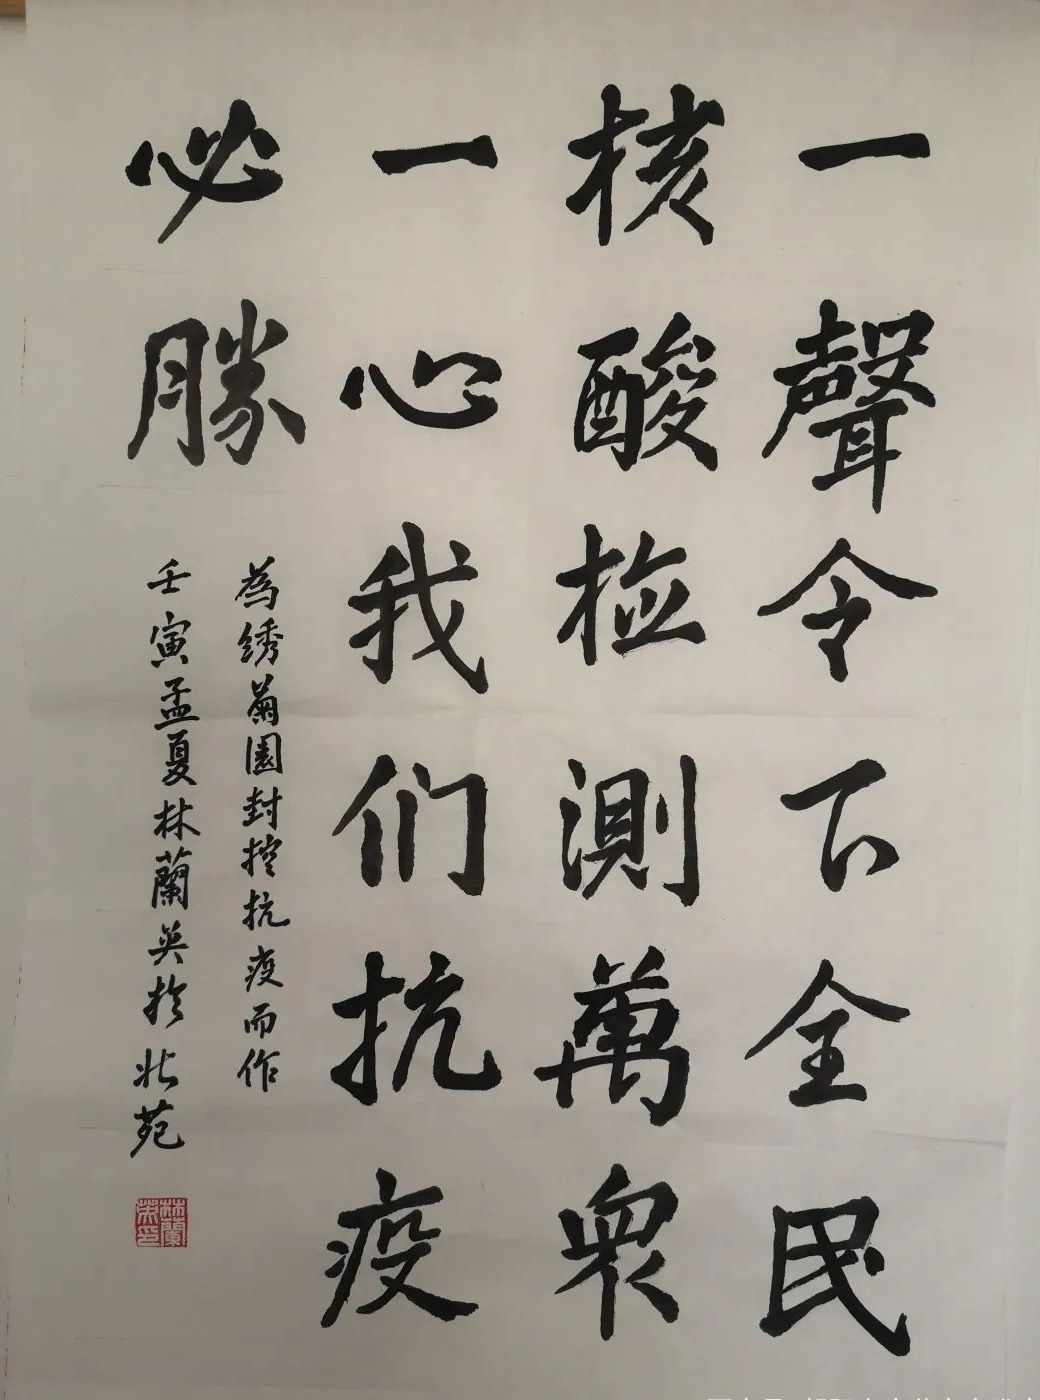 一聲令下全民
核酸检測萬衆
一心我们抗疫
必勝
為绣菊園封控抗疫而作
壬寅孟夏林蘭英於北苑
林蘭英印